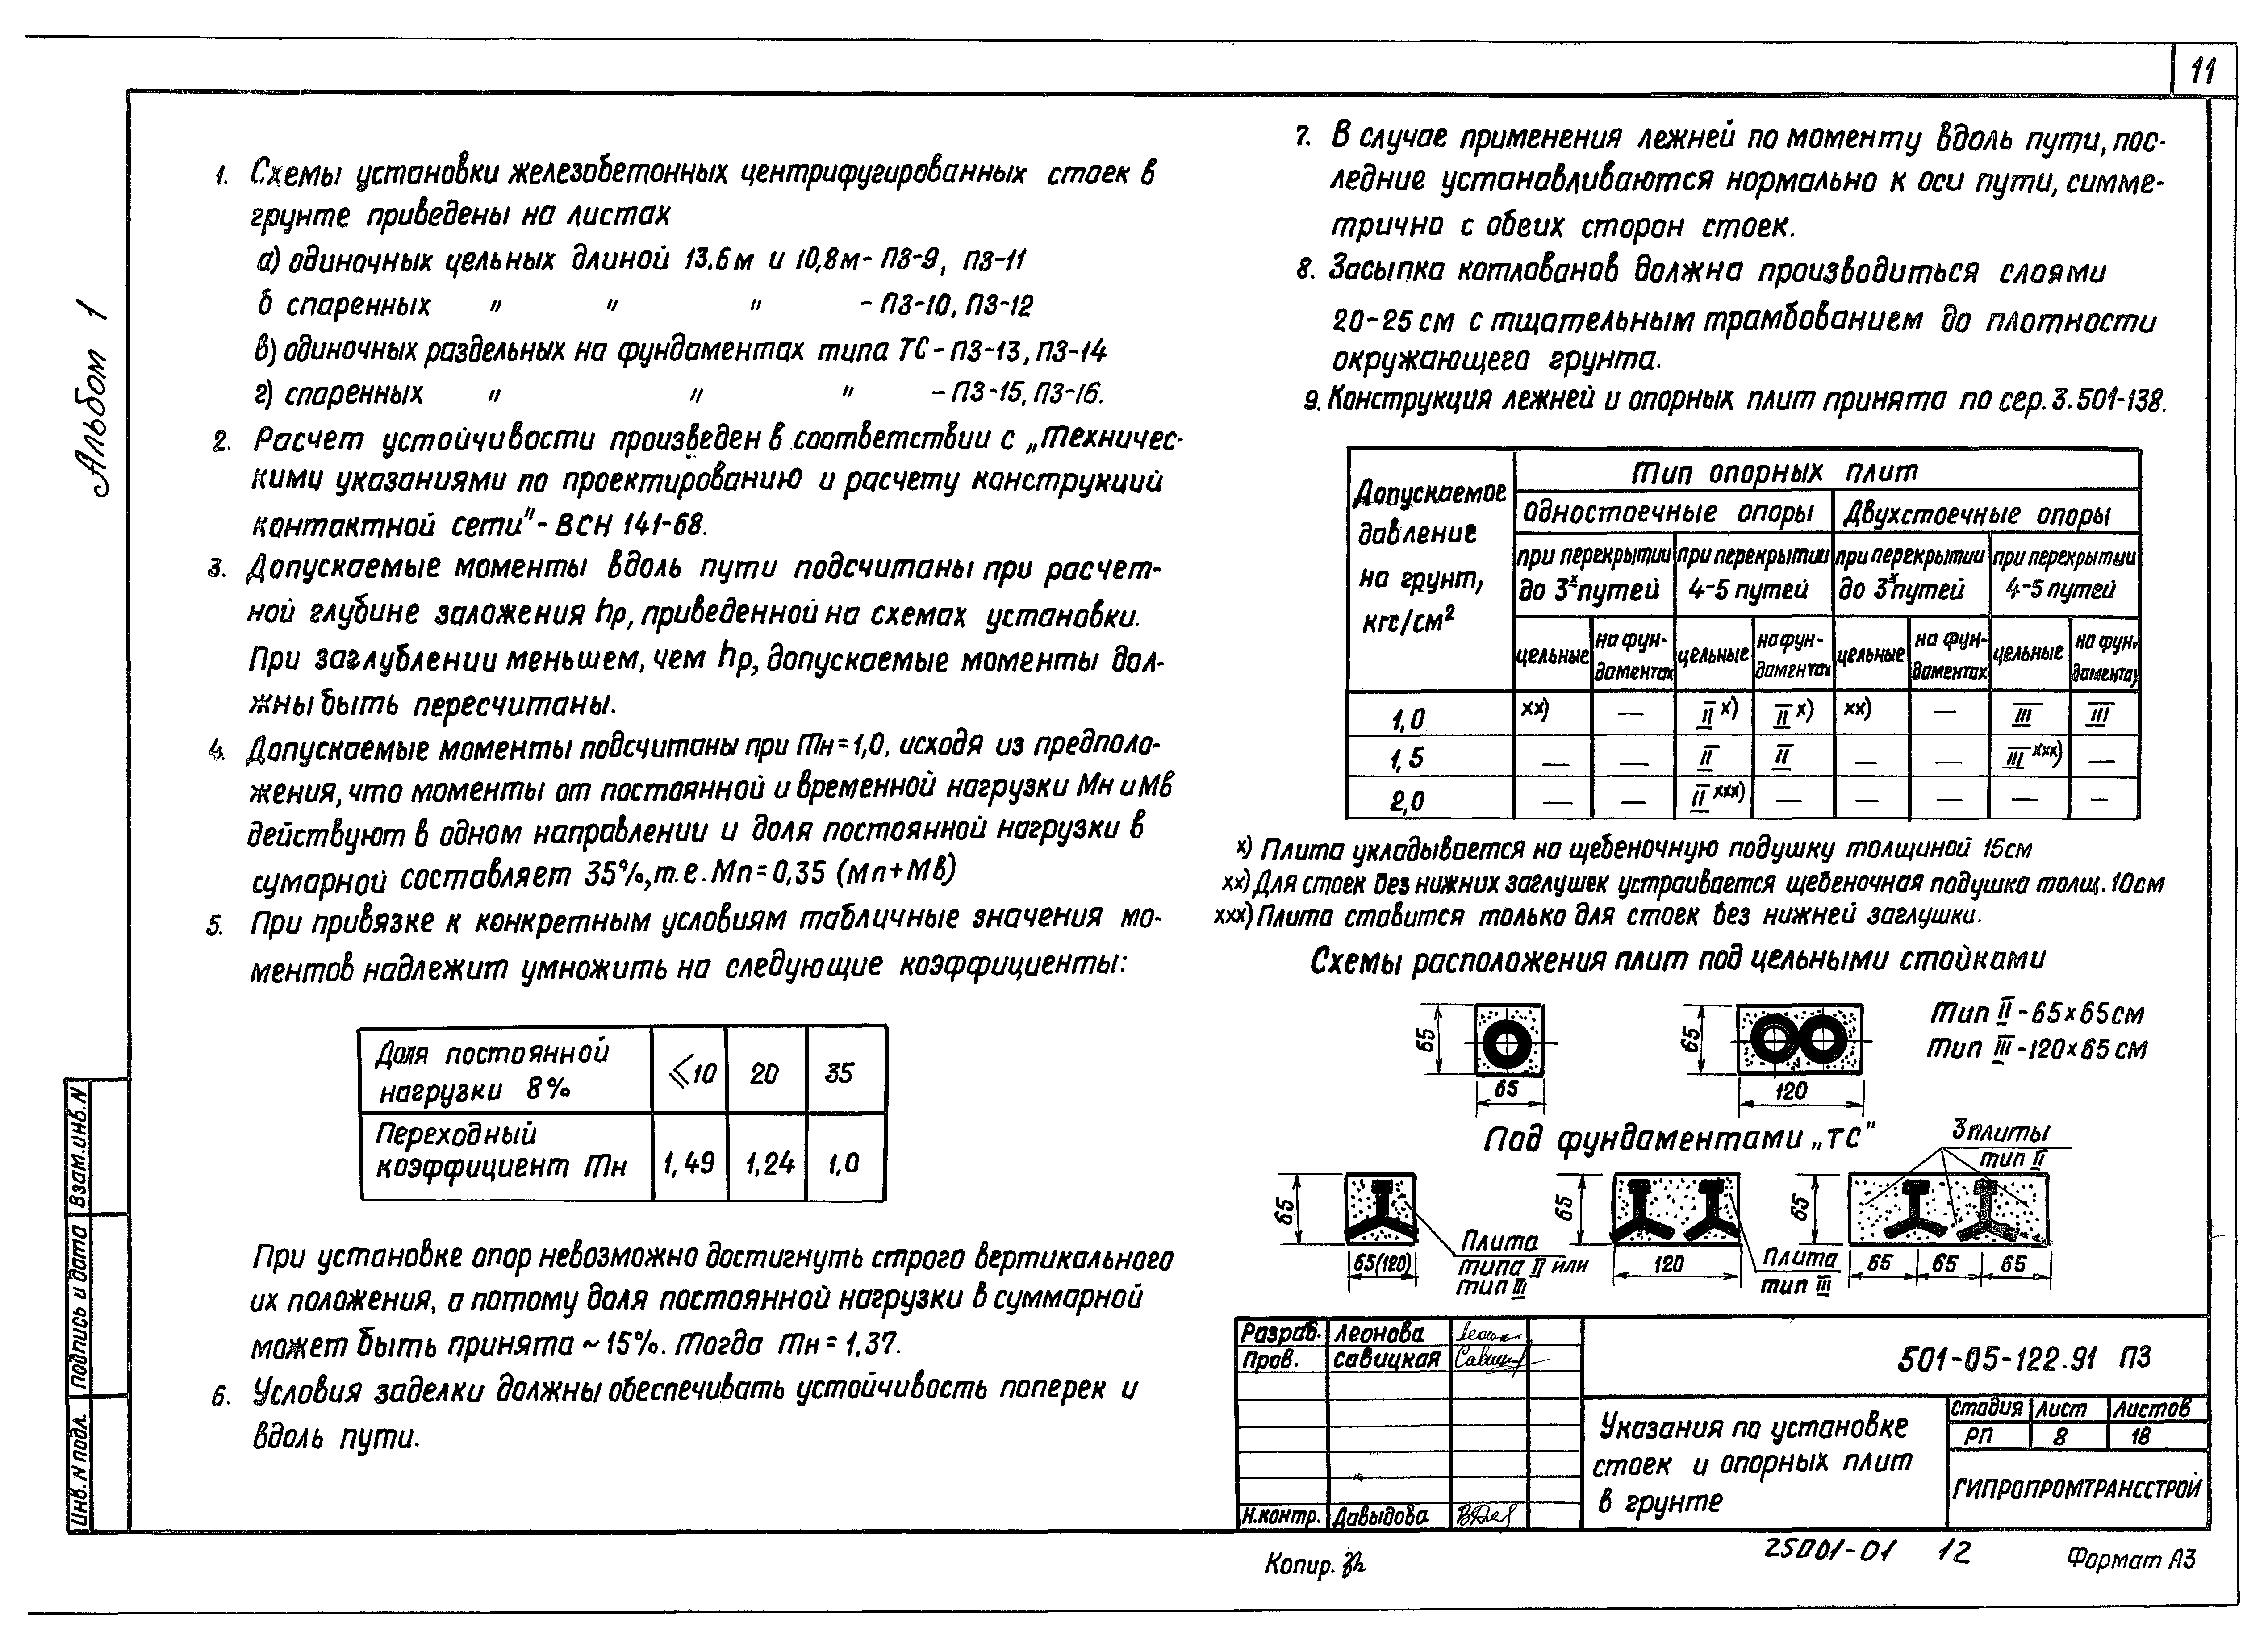 11
Альбом 1
1. Схемы установки железобетонных центрифугированных стоек в
грунте приведены на листах
а) одиночных цельных длиной 13.6м и 10,8м - ПЗ-9, ПЗ-11
б спаренных " " " - ПЗ-10, ПЗ-12
в) одиночных раздельных на фундаментах типа ТС - ПЗ-13, ПЗ-14
г) спаренных " " " - ПЗ-15, ПЗ-16.
2. Расчет устойчивости произведен в соответствии с „Техничес-
кими указаниями по проектированию и расчету конструкций
контактной сети" - ВСН 141-68.
3. Допускаемые моменты вдоль пути подсчитаны при расчет-
ной глубине заложения hр, приведенной на схемах установки.
При заглублении меньшем, чем hр, допускаемые моменты дол-
жны быть пересчитаны.
4. Допускаемые моменты подсчитаны при mн = 1,0, исходя из предполо-
жения, что моменты от постоянной и временной нагрузки Мн и Мв
действуют в одном направлении и доля постоянной нагрузки в
сумарной составляет 35%, т.е. Мп = 0,35 (Мп + Мв)
5. При привязке к конкретным условиям табличные значения мо-
ментов надлежит умножить на следующие коэффициенты:
Доля постоянной
нагрузки 8% ⩽10 20 35
Переходный
коэффициент mн 1,49 1,24 1,0
При установке опор невозможно достигнуть строго вертикального
их положения, а потому доля постоянной нагрузки в суммарной
может быть принята ~ 15%. Тогда mн = 1,37.
6. Условия заделки должны обеспечивать устойчивость поперек и
вдоль пути.
7. В случае применения лежней по моменту вдоль пути, пос-
ледние устанавливаются нормально к оси пути, симме-
трично с обеих сторон стоек.
8. Засыпка котлованов должна производиться слоями
20-25 см с тщательным трамбованием до плотности
окружающего грунта.
9. Конструкция лежней и опорных плит принята по сер. 3.501-138.
Допускаемое
давление
на грунт,
кгс/см²
Тип опорных плит
Одностоечные опоры Двухстоечные опоры
при перекрытии при перекрытии при перекрытии при перекрытии
до 3ˣ путей 4-5 путей до 3ˣ путей 4-5 путей
цельные на фун-даментах цельные на фун-даментах цельные на фун-даментах цельные на фун-даментах
1,0 хх) — II х) II х) хх) — III III
1,5 — — II II — — III ххх) —
2,0 — — II ххх) — — — — —
х) Плита укладывается на щебеночную подушку толщиной 15см
хх) Для стоек без нижних заглушек устраивается щебеночная подушка толщ. 10см
ххх) Плита ставится только для стоек без нижней заглушки.
Схемы расположения плит под цельными стойками
65 65
65 120
Тип II - 65х65см
Тип III - 120х65 см
Под фундаментами „ТС"
3 плиты
тип II
65 65(120)
Плита
типа II или
тип III
65 120
Плита
тип III
65 65 65 65
Разраб. Леонова
Пров. Савицкая
Н.контр. Давыдова
501-05-122.91 ПЗ
Указания по установке
стоек и опорных плит
в грунте
Стадия Лист Листов
РП 8 18
ГИПРОПРОМТРАНССТРОЙ
Инв. N подл. Подпись и дата Взам.инв. N
Копир.
25001-01 12
Формат А3